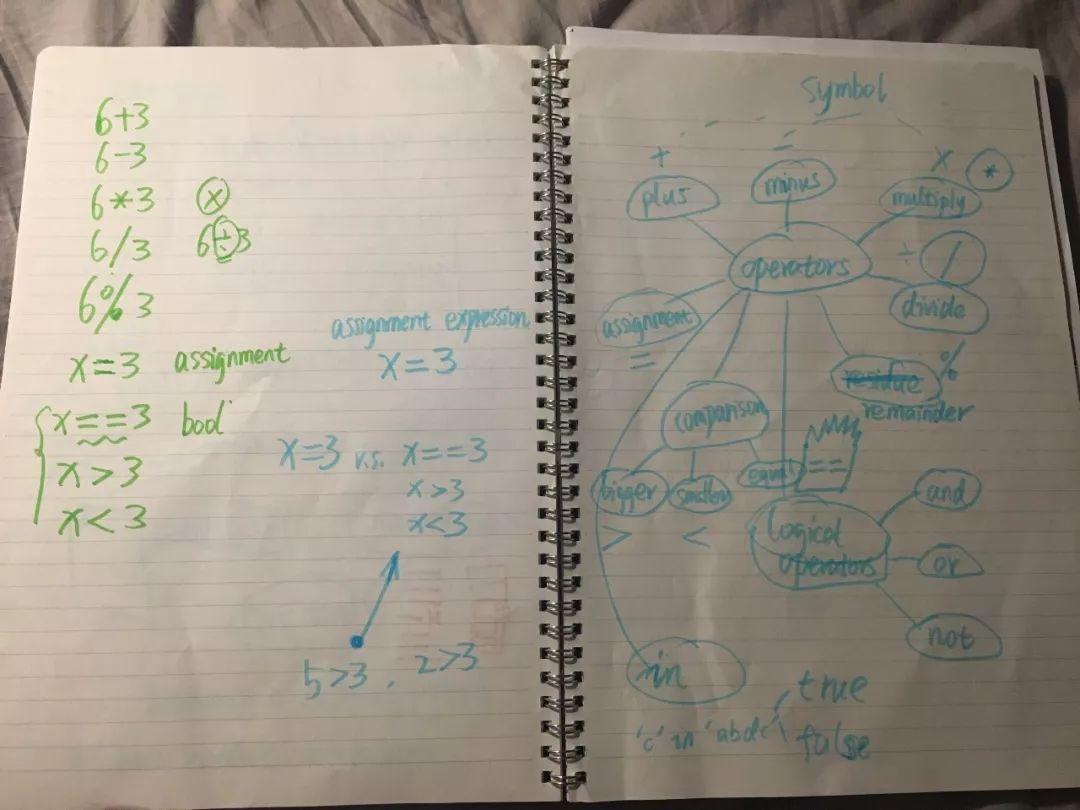 6+3
6-3
6*3 x
6/3 6÷3
6%3
x=3 assignment
x==3 bool
x>3
x<3
assignment expression
x=3
x=3 v.s. x==3
x>3
x<3
5>3, 2>3
symbol
+ - x *
plus minus multiply
operators ÷ /
assignment divide
=
residue %
remainder
comparison
bigger smaller equal ==
> <
Logical
operators
and
or
not
in
'c' in 'abdc' true
false